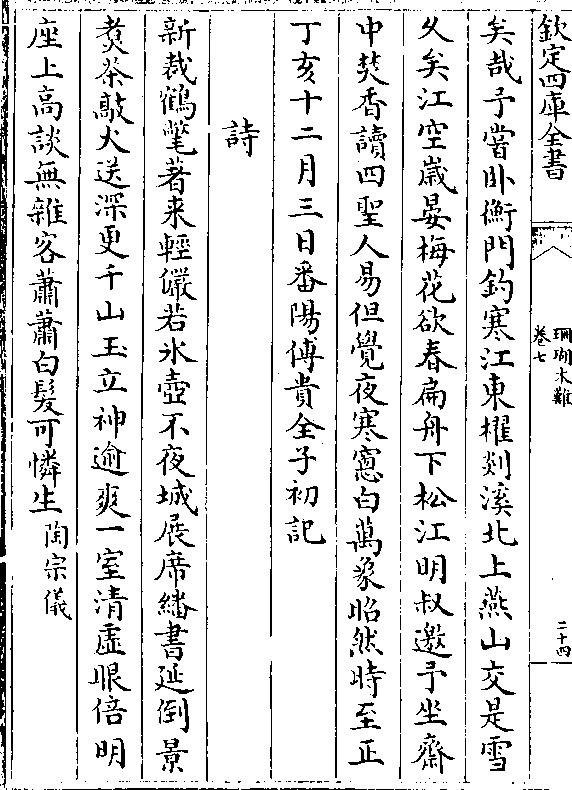 欽定四庫全書
珊瑚木難
卷七
二十四
矣哉予嘗卧衡門釣寒江東櫂剡溪北上燕山交是雪
久矣江空嵗晏梅花欲春扁舟下松江明叔邀予坐齋
中焚香讀四聖人易但覺夜寒窻白萬象昭然時至正
丁亥十二月三日番陽傅貴全子初記
詩
新裁鶴氅著来輕儼若氷壺不夜城展席繙書延倒景
煑茶敲火送深更千山玉立神逾爽一室清虚眼倍明
座上高談無雜客蕭蕭白髮可憐生陶宗儀